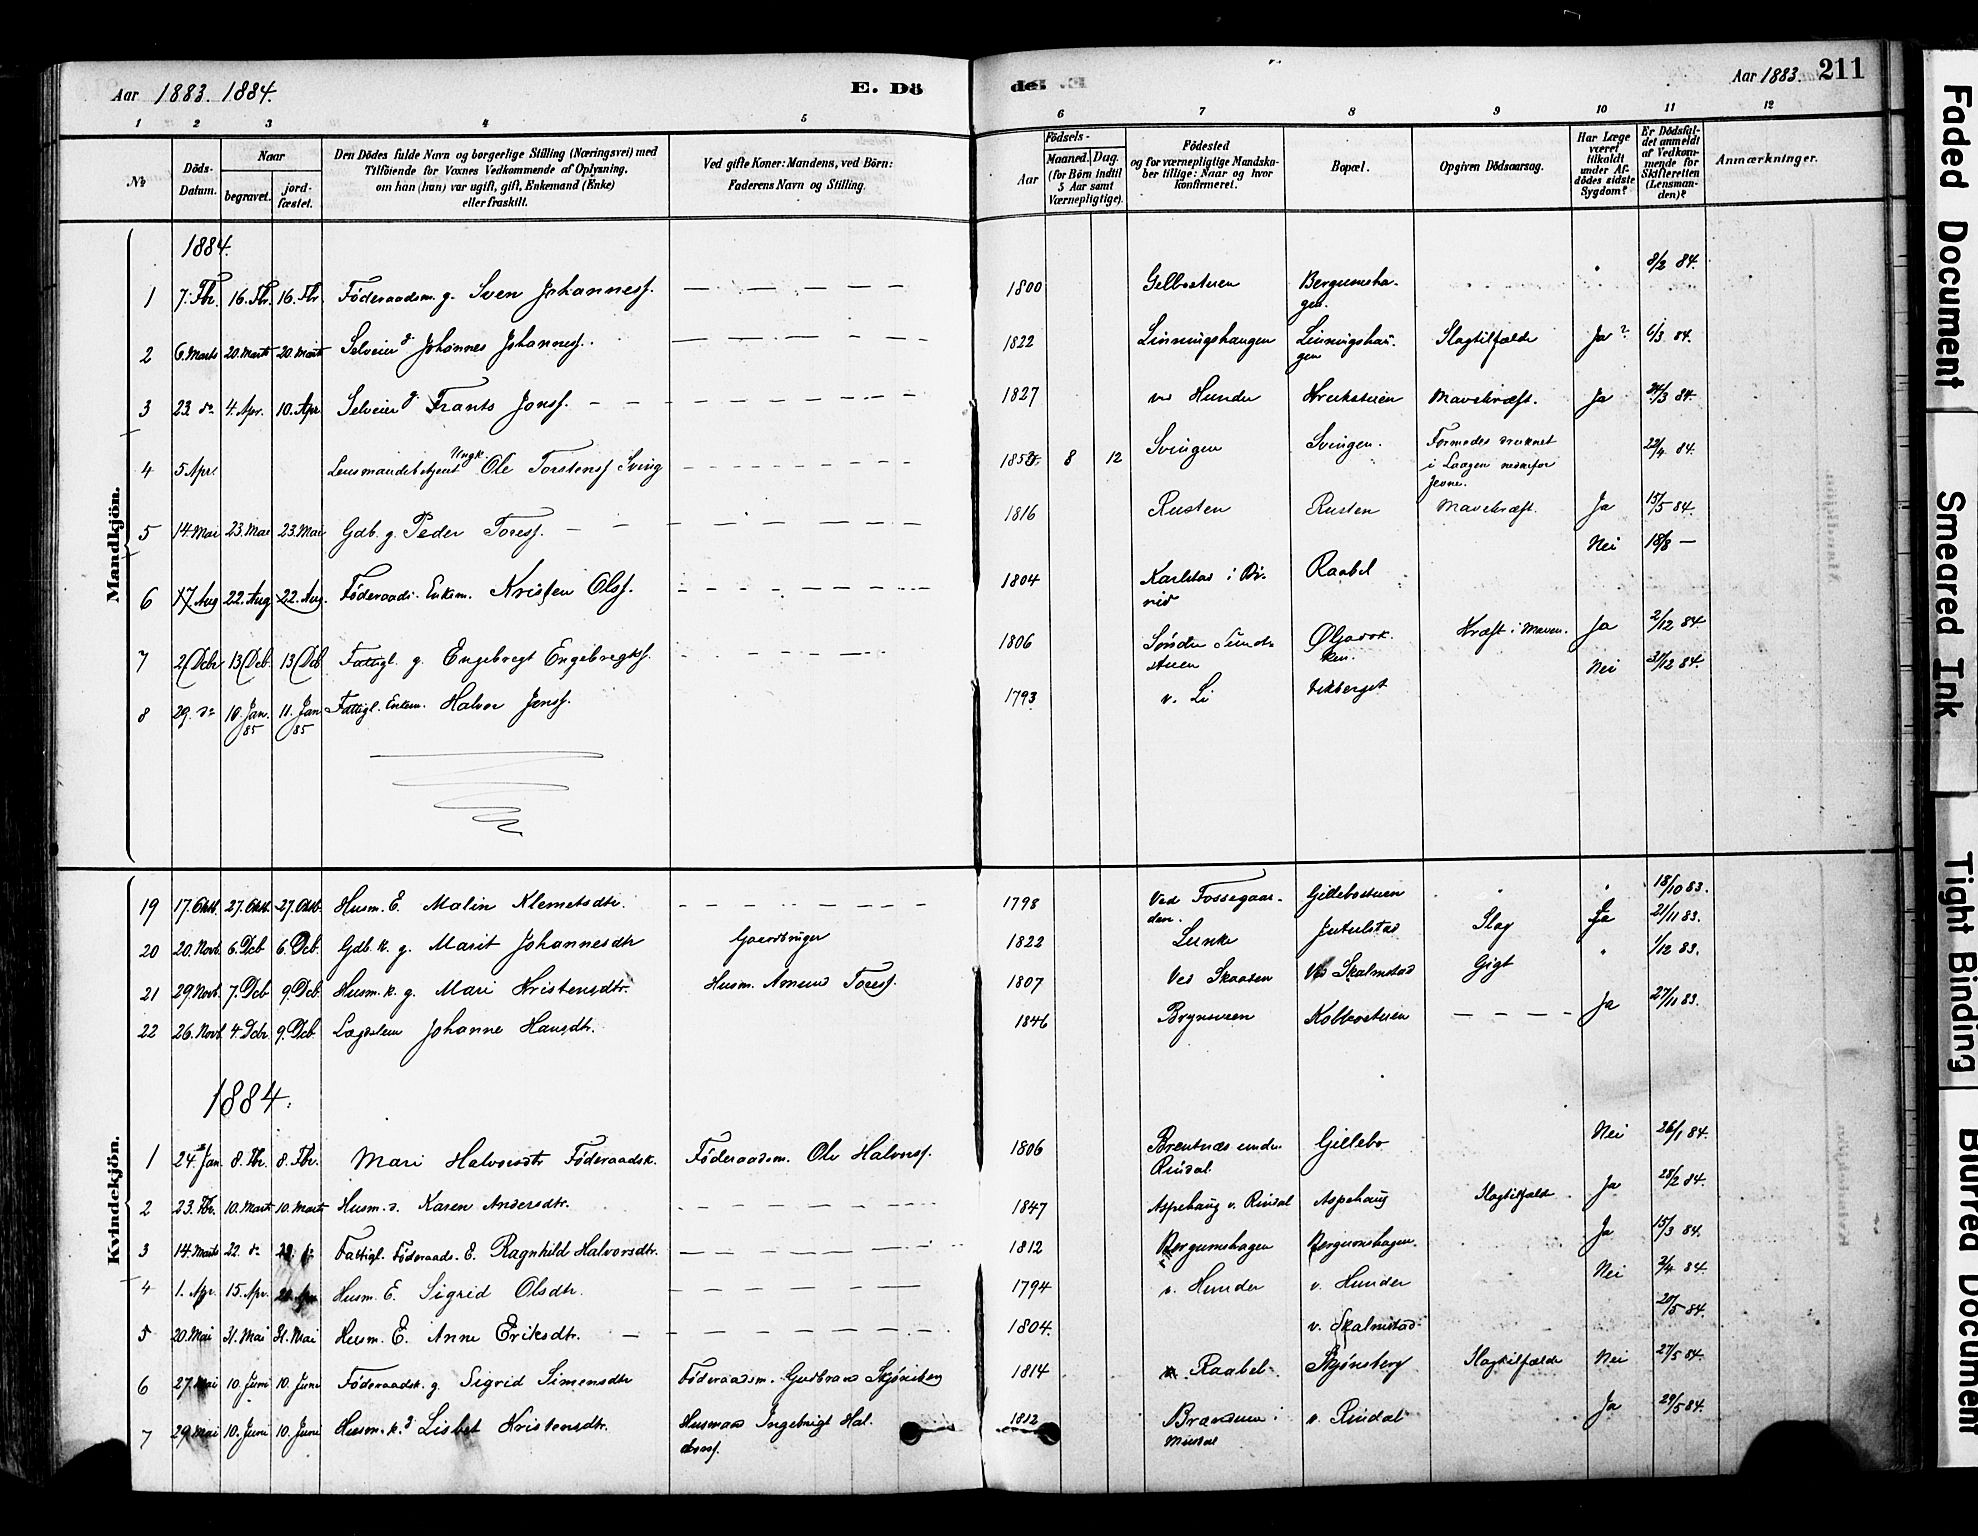 Aar 1883. 1884.
E. Dö
de.
Aar 1883. 211
1 2 3 4 5 6 7 8 9 10 11 12
No
Döds-Datum.
Naar
begravet.
jord-fæstet.
Den Dödes fulde Navn og borgerlige Stilling (Næringsvei) med
Tilföiende for Voxnes Vedkommende af Oplysning,
om han (hun) var ugift, gift, Enkemand (Enke)
eller fraskilt.
Ved gifte Koner: Mandens, ved Börn:
Faderens Navn og Stilling.
Födsels-
Aar
Maaned. Dag.
(for Börn indtil
5 Aar samt
Værnepligtige).
Födested
og for værnepligtige Mandska-
ber tillige: Naar og hvor
konfirmeret.
Bopæl.
Opgiven Dödsaarsag.
Har Læge
været
tilkaldt
under Af-
dödes sidste
Sygdom?
Er Dödsfal-
det anmeldt
af Vedkom-
mende for
Skifteretten
(Lensman-
den)?
Anmærkninger.
Mandkjön.
1884.
1 7. Fbr. 16. Fbr. 16. Fbr. Föderaadsm. g. Sven Johannesf. 1800 Gelbostuen Bergumsha-
gen. 8/2 84.
2 6. Marts 20. Marts 20. Marts Selveier g Johannes Johannesf. 1822 Linnugshaugen Linnugshau-
gen Slagtilfælde Ja? 6/3 84.
3 23. do 4. Apr. 10. Apr Selveier g Frants Jonsf. 1827 ved Hunder Mavekræft. Ja 24/3 84.
4 5 Apr. Lensmandsbetjent Ungk. Ole Torstensf Sving 8 12 Svingen Svingen. Formodes druknet
i Laagen nedenfor
Jevne. 22/4 84.
5 14. Mai 23. Mai 23. Mai Gdb. g. Peder Toresf. 1816 Rusten Rusten Mavekræft. Ja 15/5 84.
6 17. Aug 22. Aug 22. Aug. Föderaads. Enkem. Kristen Olsf. 1804 Karlstad i Öi-
nid Raabel Nei 18/8 —
7 2. Dcbr 13 Dcb. 13 Dcb Fattigl. g. Engebregt Engebregtsf. 1806 Søndre Sunds-
stuen Kræft i Maven. Ja 2/12 84.
8 29. do 10. Jan.
85 11. Jan
85 Fattigl. Enkem. Halvor Jensf. 1793 v. Li Nei 31/12 84.
Kvindekjön.
19 17. Oktb. 27. Oktb. 27. Oktb. Husm. E. Malin Klemetsdtr. 1798 Ved Fossegaar-
den. Gillebostuen 18/10 83.
20 20. Novb. 6. Dcb 6. Dcb. Gdb. k. g. Marit Johannesdtr Gaardbruger 1822 Lunke Jutulstad Slag Ja 21/11 83.
21 29. Novb. 7. Dcb 9. Dcb. Husm. k. g. Mari Kristensdtr. Husm. Amund Toresf. 1807 Ved Skaaden Ved Skalmstad Gigt 1/12 83.
22 26. Novb 4. Dcbr 9. Dcb. Lægdslem Johanne Hansdtr. 1846 Brynsveen Kolbostuen Ja 27/11 83.
1884.
1 24. Jan. 8. Fbr. 8. Fbr. Mari Halvorsdtr Föderaadsk. Föderaadsm. Ole Halvorsf. 1806 Brentnæs under
Rindal. Gillebo Nei 26/1 84.
2 23. Fbr. 10. Marts 10. Marts Husm. d. Karen Andersdtr. 1847 Aspehaug v. Rindal Aspehaug Slagtilfælde Ja 28/2 84.
3 14. Marts 22. do Fattigl. Föderaads. E. Ragnhild Halvorsdtr. 1812 Bergumshagen Bergumshagen. Ja 15/3 84.
4 1. Apr. 15. Apr. Husm. E. Sigrid Olsdtr. 1794 v. Hunder v. Hunder Nei 2/4 84.
5 20. Mai 31. Mai 31. Mai Husm. E. Anne Eriksdtr. 1804. v. Skalmstad 20/5 84.
6 27. Mai 10. Juni 10. Juni Föderaadsk. g. Sigrid Simensdtr Föderaadsm. Gudbrand Skjønsberg 1814 Raabel. Skjønsberg Slagtilfælde Nei 27/5 84.
7 29. Mai 10. Juni 10. Juni Husm. k. g Lisbet Kristensdtr. Husmand Ingebrigt Hal-
dorsf. 1812 v. Rindal Ja 29/5 84.
Faded Document
Smeared Ink
Tight Binding
Blurred Document